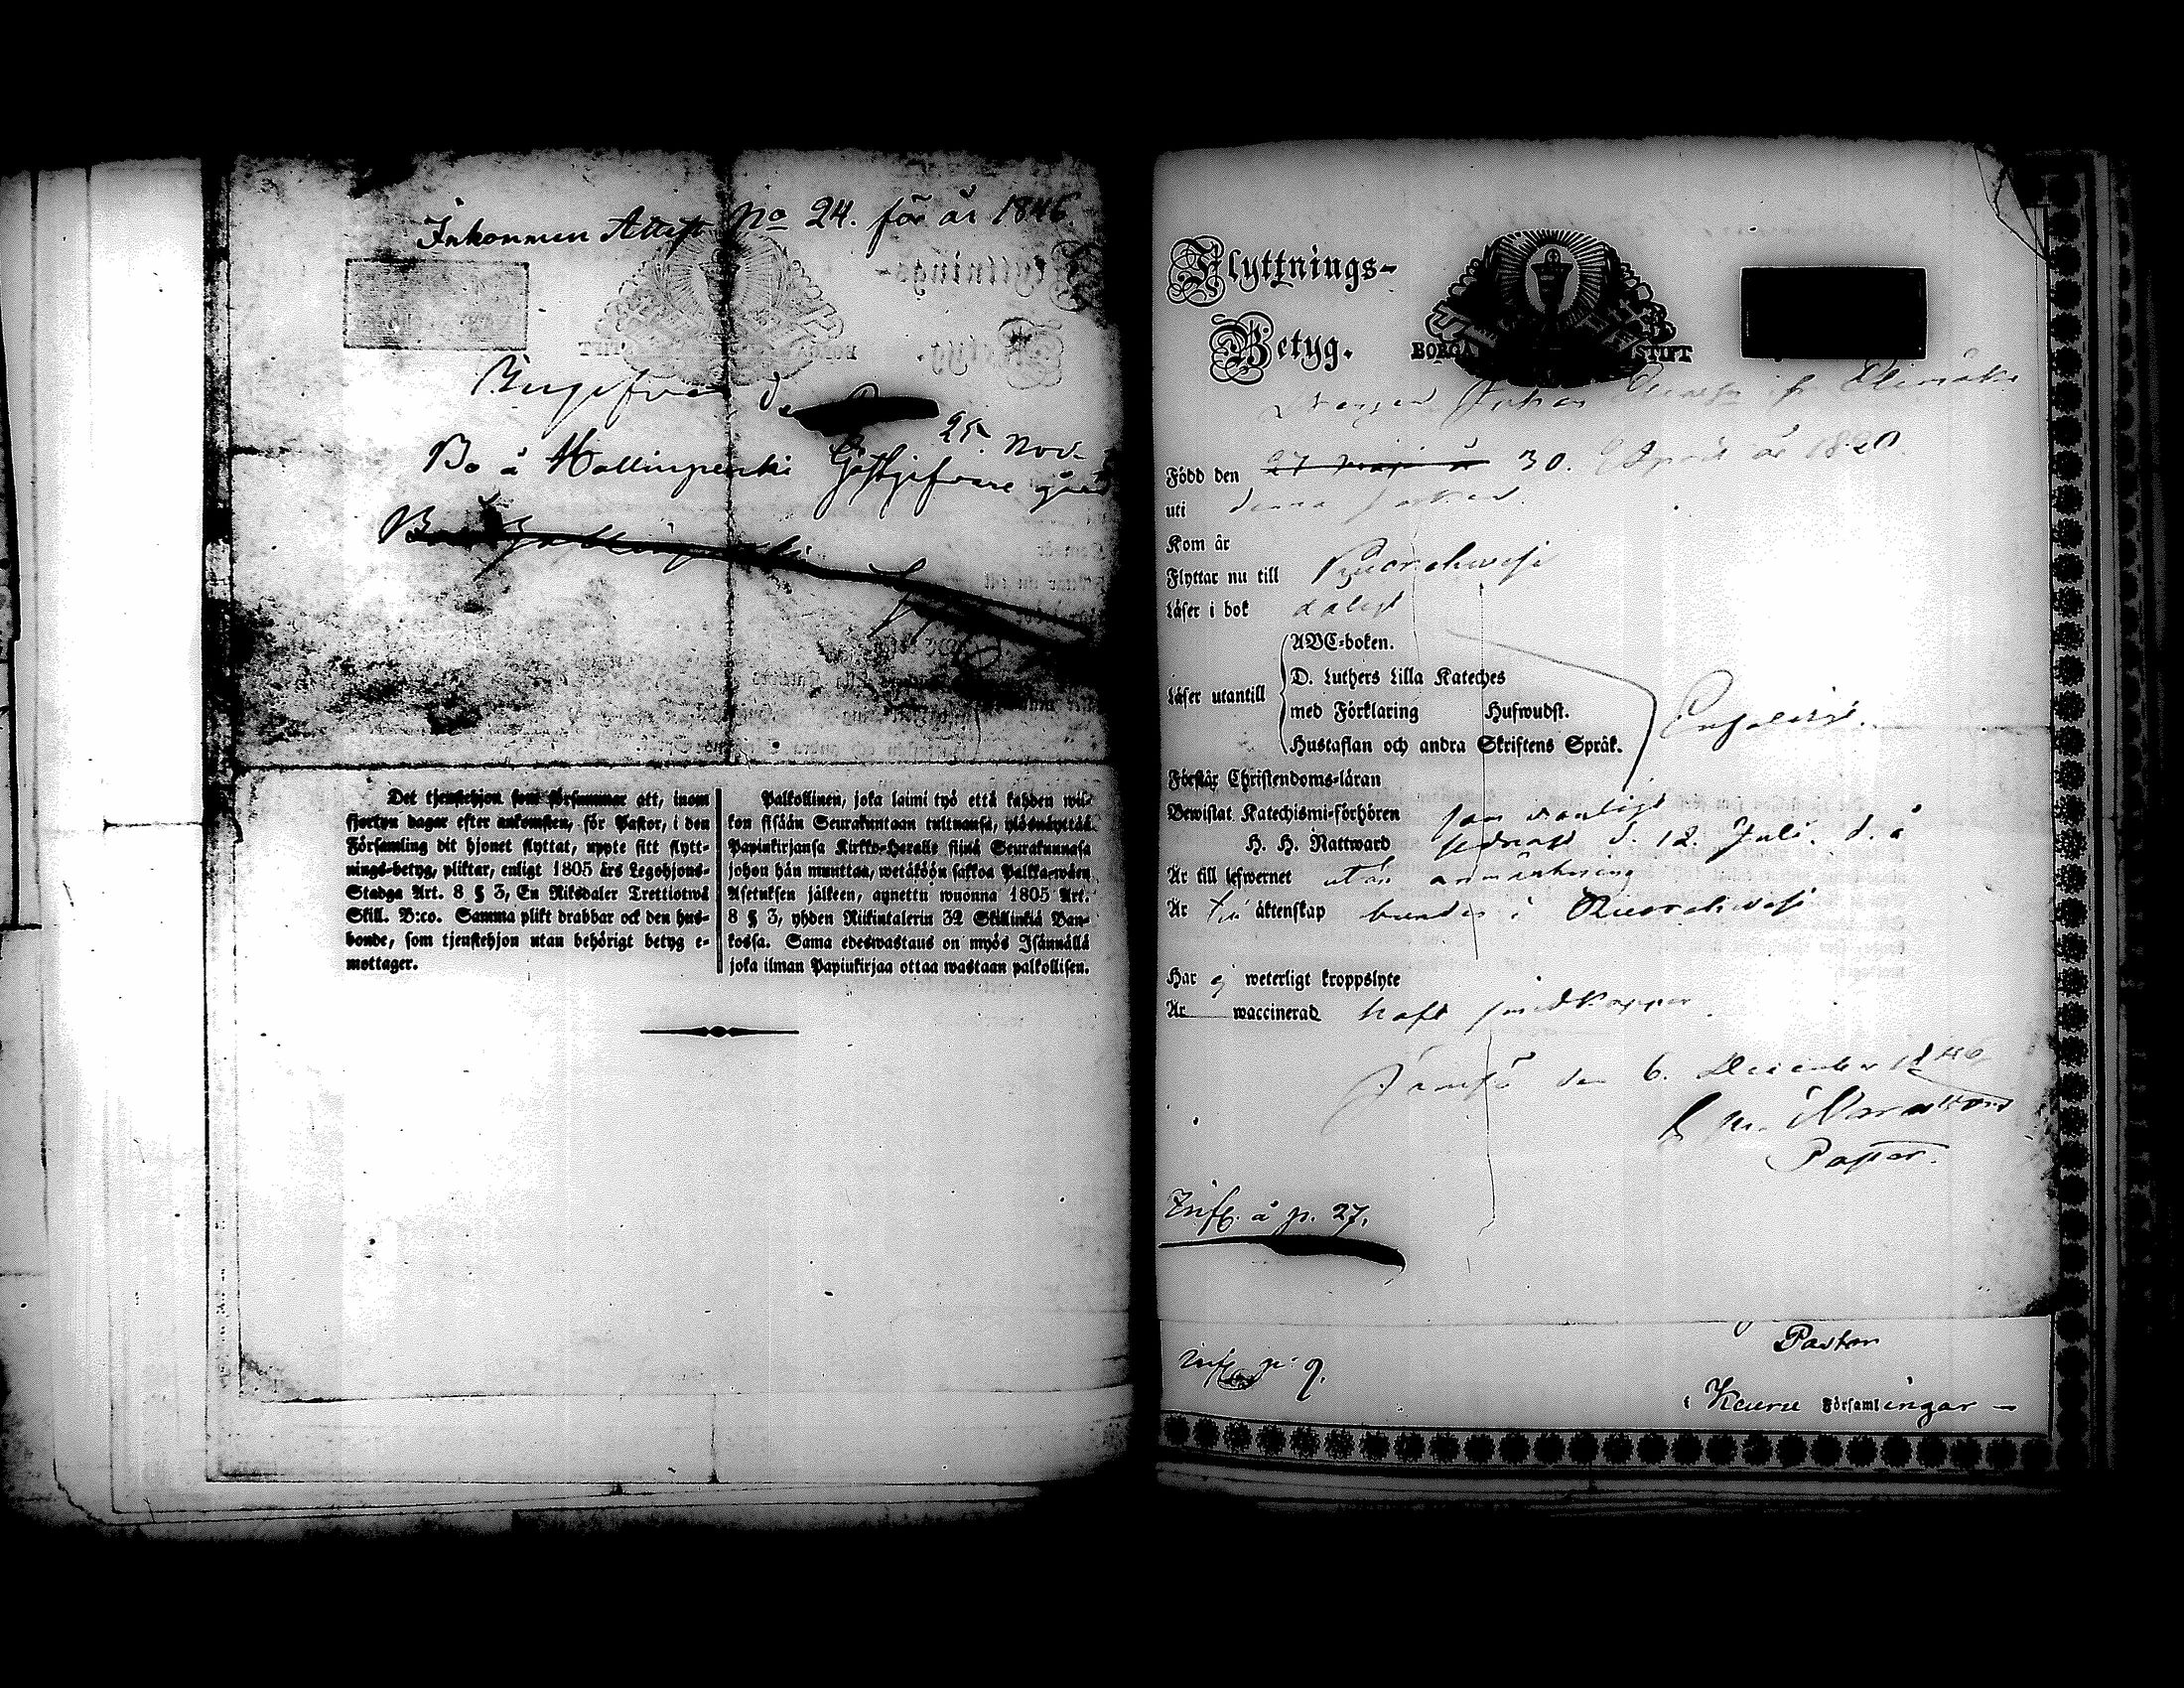 Inkommen Attest No 24. för år 1846
25 Nov.
Bo å Gästgifvare
Det tjenstehjon som försummar att, inom
fjorton dagar efter ankomsten, för Pastor, i den
Församling dit hjonet flyttat, uppte sitt flytt-
nings-betyg, pliktar, enligt 1805 års Legohjons-
Stadga Art. 8 § 3, En Riksdaler Trettiotwå
Skill. B:co. Samma plikt drabbar ock den hus-
bonde, som tjenstehjon utan behörigt betyg e-
mottager.
Palkollinen, joka laimi lyö että kahden wii-
kon sisään Seurakuntaan tultuansa, ylösnäyttää
Papinkirjansa Kirkko-Heralle siinä Seurakunnasa
johon hän muuttaa, wetäköön sakkoa Palkka-wäen
Asetuksen jälkeen, annettu wuonna 1805 Art.
8 § 3, yhden Riikintalerin 32 Skillinkiä Ban-
kossa. Sama edeswastaus on myös Isännällä
joka ilman Papinkirjaa ottaa wastaan palkollisen.
Flyttnings-
Betyg.
BORGÅ STIFT
Drengen Johan
Född den 30. April år 1820.
uti denna socken.
Kom år
Flyttar nu till Ruovehwesi
Läser i bok daligt
Läser utantill
ABC-boken.
D. Luthers Lilla Kateches
med Förklaring Hufwudst.
Hustaflan och andra Skriftens Språk.
Förstår Christendoms-läran
Bewistat Katechismi-förhören som wanligt
H. H. Nattward sednast d. 12. Juli d. å
Är till lefwernet utan anmärkning
Är till äktenskap bunden i Ruovehwesi
Har ej weterligt kroppslyte
Är waccinerad haft smittkoppor
Jämsä den 6. December 1846
Pastor.
Infl. å p. 27.
Pastor
Infl p: 9.
i Keuru Församlingar